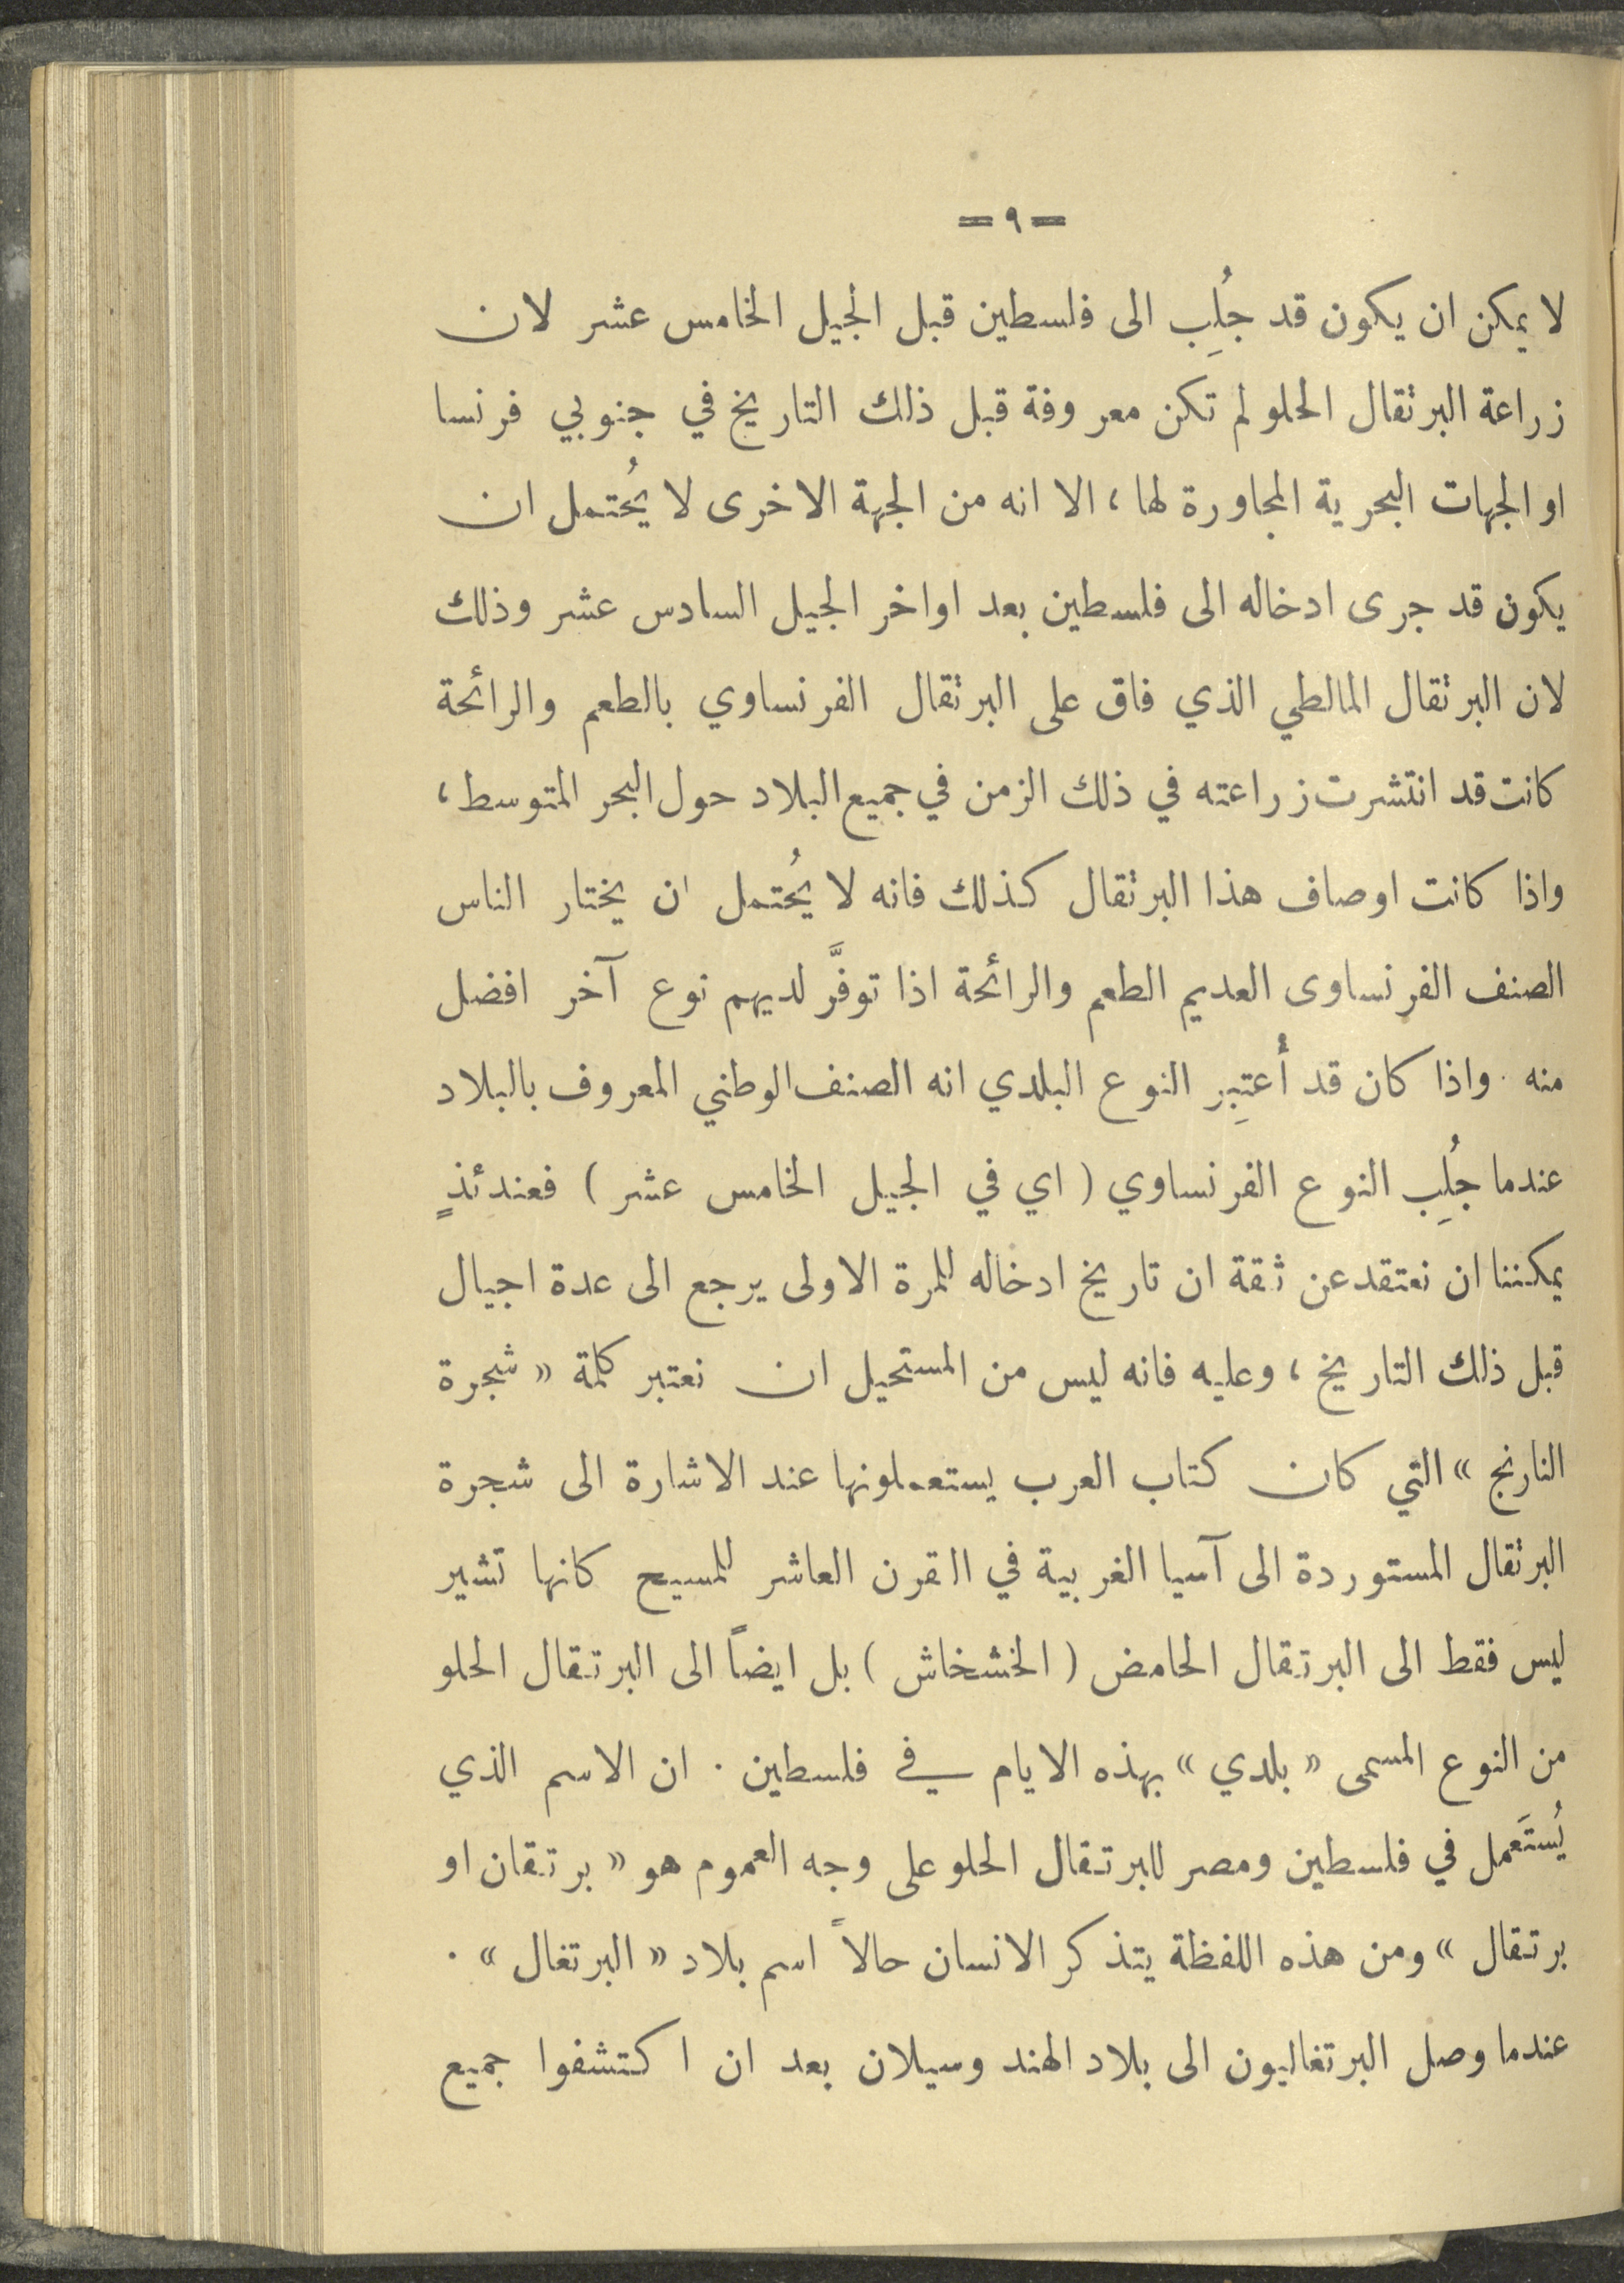 = ٩ =
لا يمكن ان يكون قد جُلِب الى فلسطين قبل الجيل الخامس عشر لان
زراعة البرتقال الحلو لم تكن معروفة قبل ذلك التاريخ في جنوبي فرنسا
او الجهات البحرية المجاورة لها، الا انه من الجهة الاخرى لا يُحتمل ان
يكون قد جرى ادخاله الى فلسطين بعد اواخر الجيل السادس عشر وذلك
لان البرتقال المالطي الذي فاق على البرتقال الفرنساوي بالطعم والرائحة
كانت قد انتشرت زراعته في ذلك الزمن في جميع البلاد حول البحر المتوسط،
واذا كانت اوصاف هذا البرتقال كذلك فانه لا يُحتمل ان يختار الناس
الصنف الفرنساوى العديم الطعم والرائحة اذا توفَّر لديهم نوع آخر افضل
منه . واذا كان قد أُعتبِر النوع البلدي انه الصنف الوطني المعروف بالبلاد
عندما جُلِب النوع الفرنساوي ( اي في الجيل الخامس عشر ) فعندئذٍ
يمكننا ان نعتقد عن ثقة ان تاريخ ادخاله للمرة الاولى يرجع الى عدة اجيال
قبل ذلك التاريخ، وعليه فانه ليس من المستحيل ان نعتبر كلمة « شجرة
النارنج » التي كان كتاب العرب يستعملونها عند الاشارة الى شجرة
البرتقال المستوردة الى آسيا الغربية في القرن العاشر للمسيح كانها تشير
ليس فقط الى البرتقال الحامض ( الخشخاش ) بل ايضاً الى البرتقال الحلو
من النوع المسمى « بلدي » بهذه الايام في فلسطين . ان الاسم الذي
يُستَعمل في فلسطين ومصر للبرتقال الحلو على وجه العموم هو « برتقان او
برتقال » ومن هذه اللفظة يتذكر الانسان حالاً اسم بلاد « البرتغال » .
عندما وصل البرتغاليون الى بلاد الهند وسيلان بعد ان اكتشفوا جميع